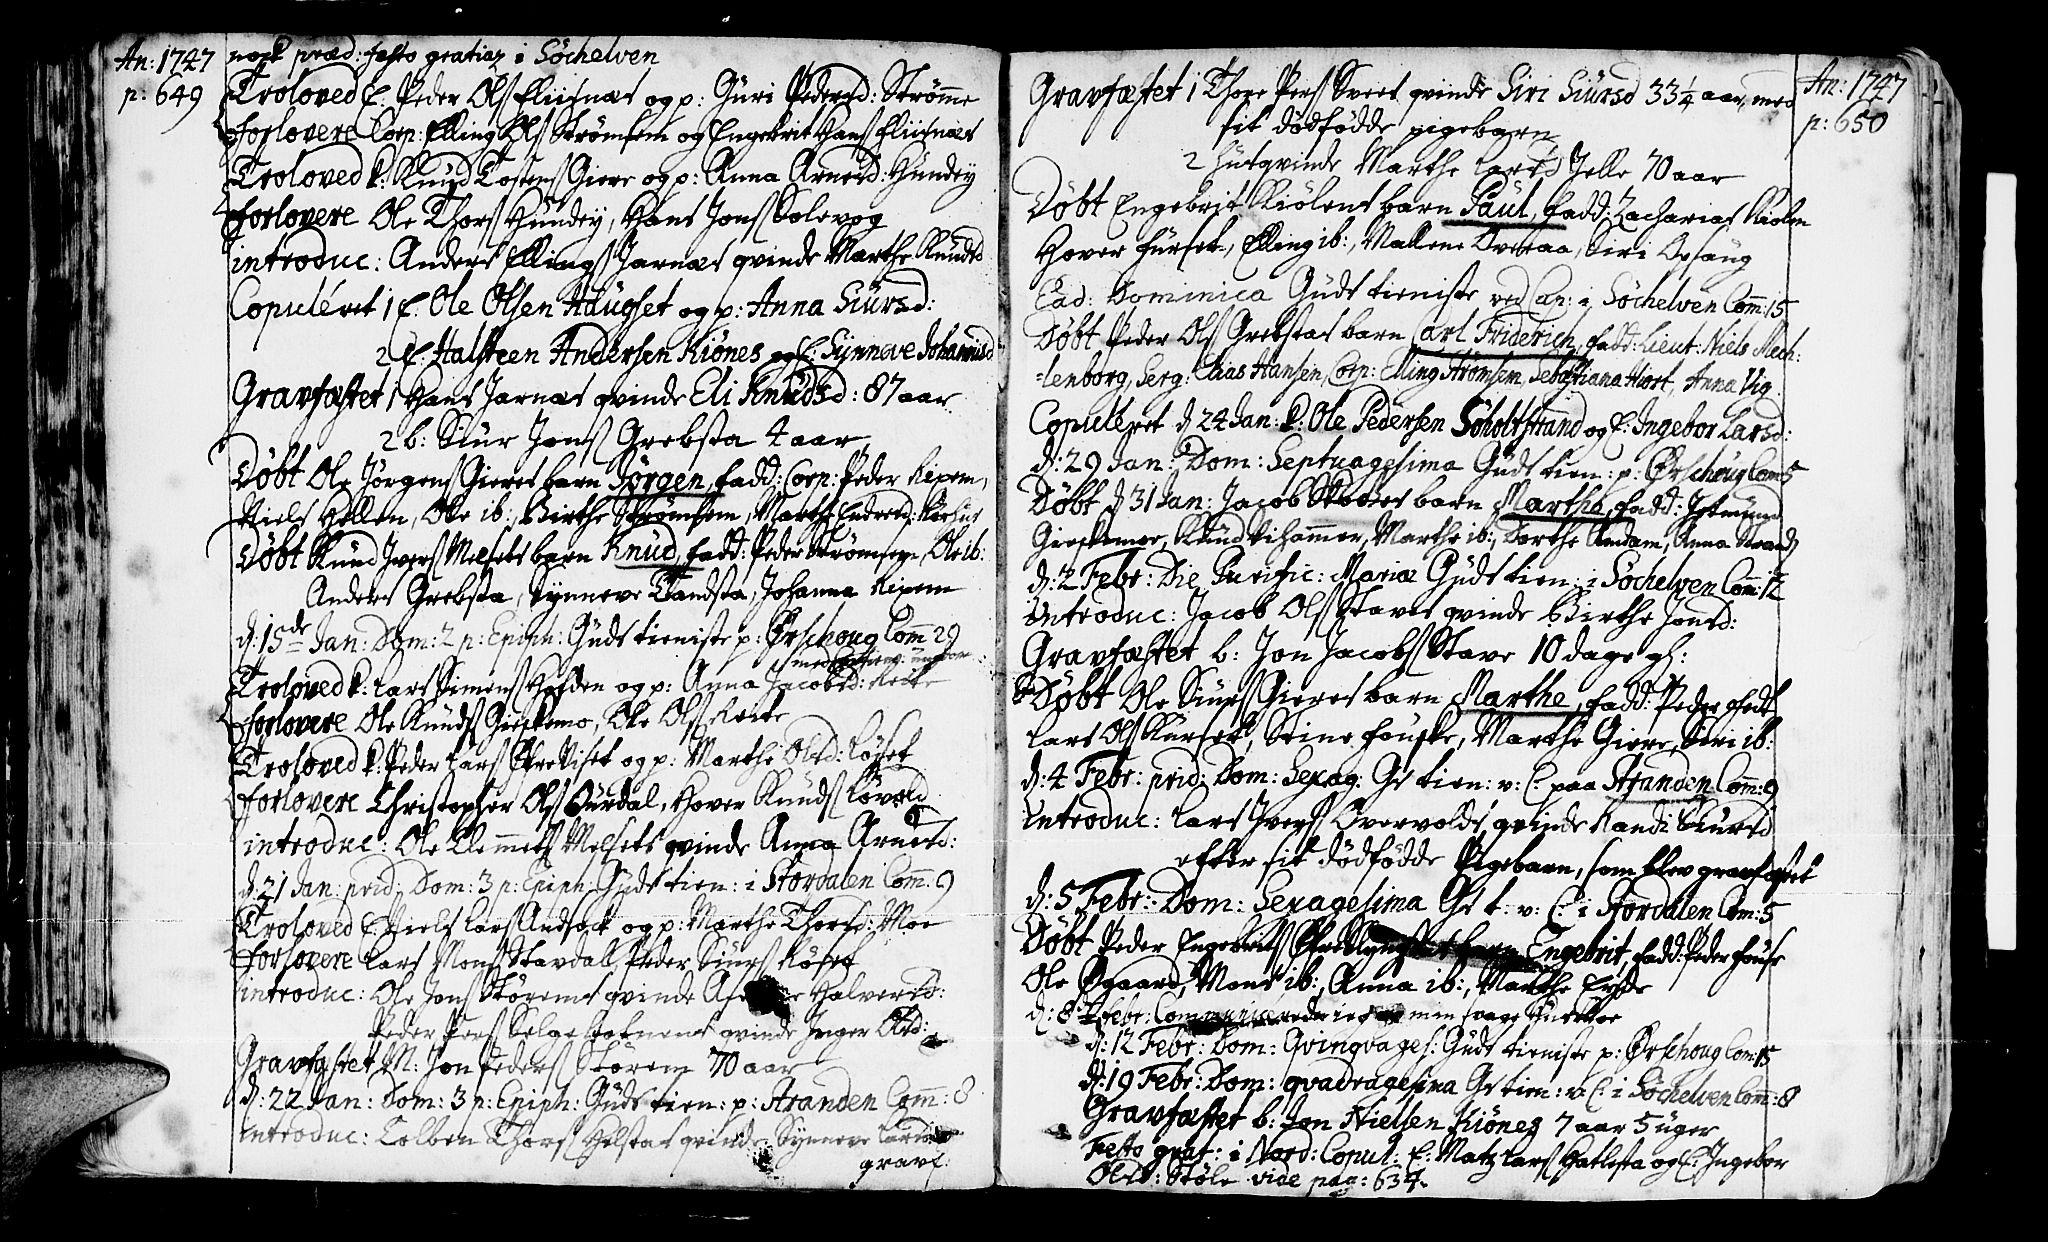 An: 1747
p: 649
nock præd: festo gratiæ i Söchelven
Troloved E. Peder Ols Fliisnæs og p: Guri Pedersd: Strømme
Forlovere Corp: Elling Ols Strømsem og Engebrit Hans Fliisnæs
Troloved k: Knud Tostens Giere og p: Anna Arnesd: Hundey
Forlovere Ole Thors Hundey, Hans Jons Solevog
introduc: Anders Ellings Jarnæs qvinde Marthe Knudsd
Copuleret 1 E. Ole Olsen Haugset og p: Anna Siursd:
2 E. Halsteen Andersen Kiönes og E: Synneve Johannisd
Gravfæstet 1 Hans Jarnæs qvinde Eli Knudsd: 87 aar
2 b: Siur Jons Grebsta 4 aar
Döbt Ole Jörgens Gieres barn Jörgen, fadd: Corp: Peder Ripem,
Niels Hellen, Ole ib:, Birthe Strømsem, Marthe Endresd:
Döbt Knud Ivers Melsets barn Knud, fadd: Peder Strømsem, Ole ib:
Anders Grebsta, Synneve Tandsta, Johanna Ripem
d: 15de Jan: Dom: 2 p: Epiph: Guds tieniste p: Ørschoug Com 29
Troloved k: Lars Simens Hesden og p: Anna Jacobsd:
Forlovere Ole Knuds Gieskemo, Ole Ols
Troloved k: Peder Lars Ekrevset og p: Marthe Olsd: Löset
Forlovere Christopher Ols Burdal, Hover Knuds Lövold
introduc: Ole Clemmets Melsets qvinde Anna Arnesd:
d: 21 Jan: prid: Dom: 3 p: Epiph: Guds tien: i Stordalen Com: 9
Troloved E. Niels Lars og p: Marthe Thorsd: Moe
Forlovere Lars Mons Stavdal, Peder Siurs Löset
introduc: Ole Jons Störems qvinde Halvorsd:
Peder qvinde Inger Olsd:
Gravfæstet M: Jon Peders Störem 70 aar
d: 22 Jan: Dom: 3 p: Epiph: Guds tien: p: Stranden Com: 8
introduc: Tolben Thors Helstas qvinde Synneve Larsd
gravf:
An: 1747
p: 650
Gravfæstet 1 Thore Pers Sveet qvinde Siri Siursd 33 1/4 aar, med
sit dödfödde pigebarn
2 huusqvinde Marthe Larsd Jelle 70 aar
Döbt Engebrit Kiölens barn Paul, fadd: Zacharias Kiölen
Hover Furset, Elling ib:, Mallene Overaa, Siri Ovsaug
Ead: Dominica Guds tieniste ved Can: i Söchelven Com: 15
Döbt Peder Ols Grebstas barn Carl Friderich, fadd: Lieut: Niels Mech:
=lenborg, Serg: Claas Hansen, Corp: Elling Strømsem, Sebastiana Hiort, Anna Vig
Copuleret d 24 Jan: E: Ole Pedersen Söholtstrand og E: Ingebor Larsd:
d: 29 Jan: Dom: Septuagesima Guds tien: p: Ørschoug Com: 5
Döbt d 31 Jan: Jacob barn Martha, fadd: Jetmund
Gieskemoe, Knud Vihammer, Marthe ib:, Dorthe Amdam, Anna Strand
d: 2 Febr: Die Purific: Mariæ Guds tien: i Söchelven Com: 12
introduc: Jacob Ols Staves qvinde Birthe Jonsd:
Gravfæstet b: Jon Jacobs Stave 10 dage gl:
Döbt Ole Siurs Gieres barn Marthe, fadd: Peder
Lars Ols Kurset, Stine Fauske, Marthe Giere, Siri ib:
d: 4 Febr: prid: Dom: Sexag: Gs tien: v: C: paa Stranden Com: 9
introduc: Lars Ivers Overvolds qvinde Randi Siursd
efter sit dödfödde Pigebarn, som blev gravfæstet
d: 5 Febr: Dom: Sexagesima Gs t: v: C: i Stordalen Com: 5
Döbt Peder Engebrits barn Engebrit, fadd: Peder
Ole Øgaard, Mons ib:, Anna ib:, Marthe Eyde
d: 8 Febr: min svage
d: 12 Febr: Dom: Qvinqvages: Guds tieniste p: Ørschoug Com: 15
d: 19 Febr: Dom: qvadragesima Gs tien: v: C: i Söchelven Com: 8
Gravfæstet b: Jon Nielsen Kiönes 7 aar 5 uger
Festo grat: i Nord: Copul: E: Matz Lars Hatlesta og E: Ingebor
Olsd: Stöle vide pag: 634.